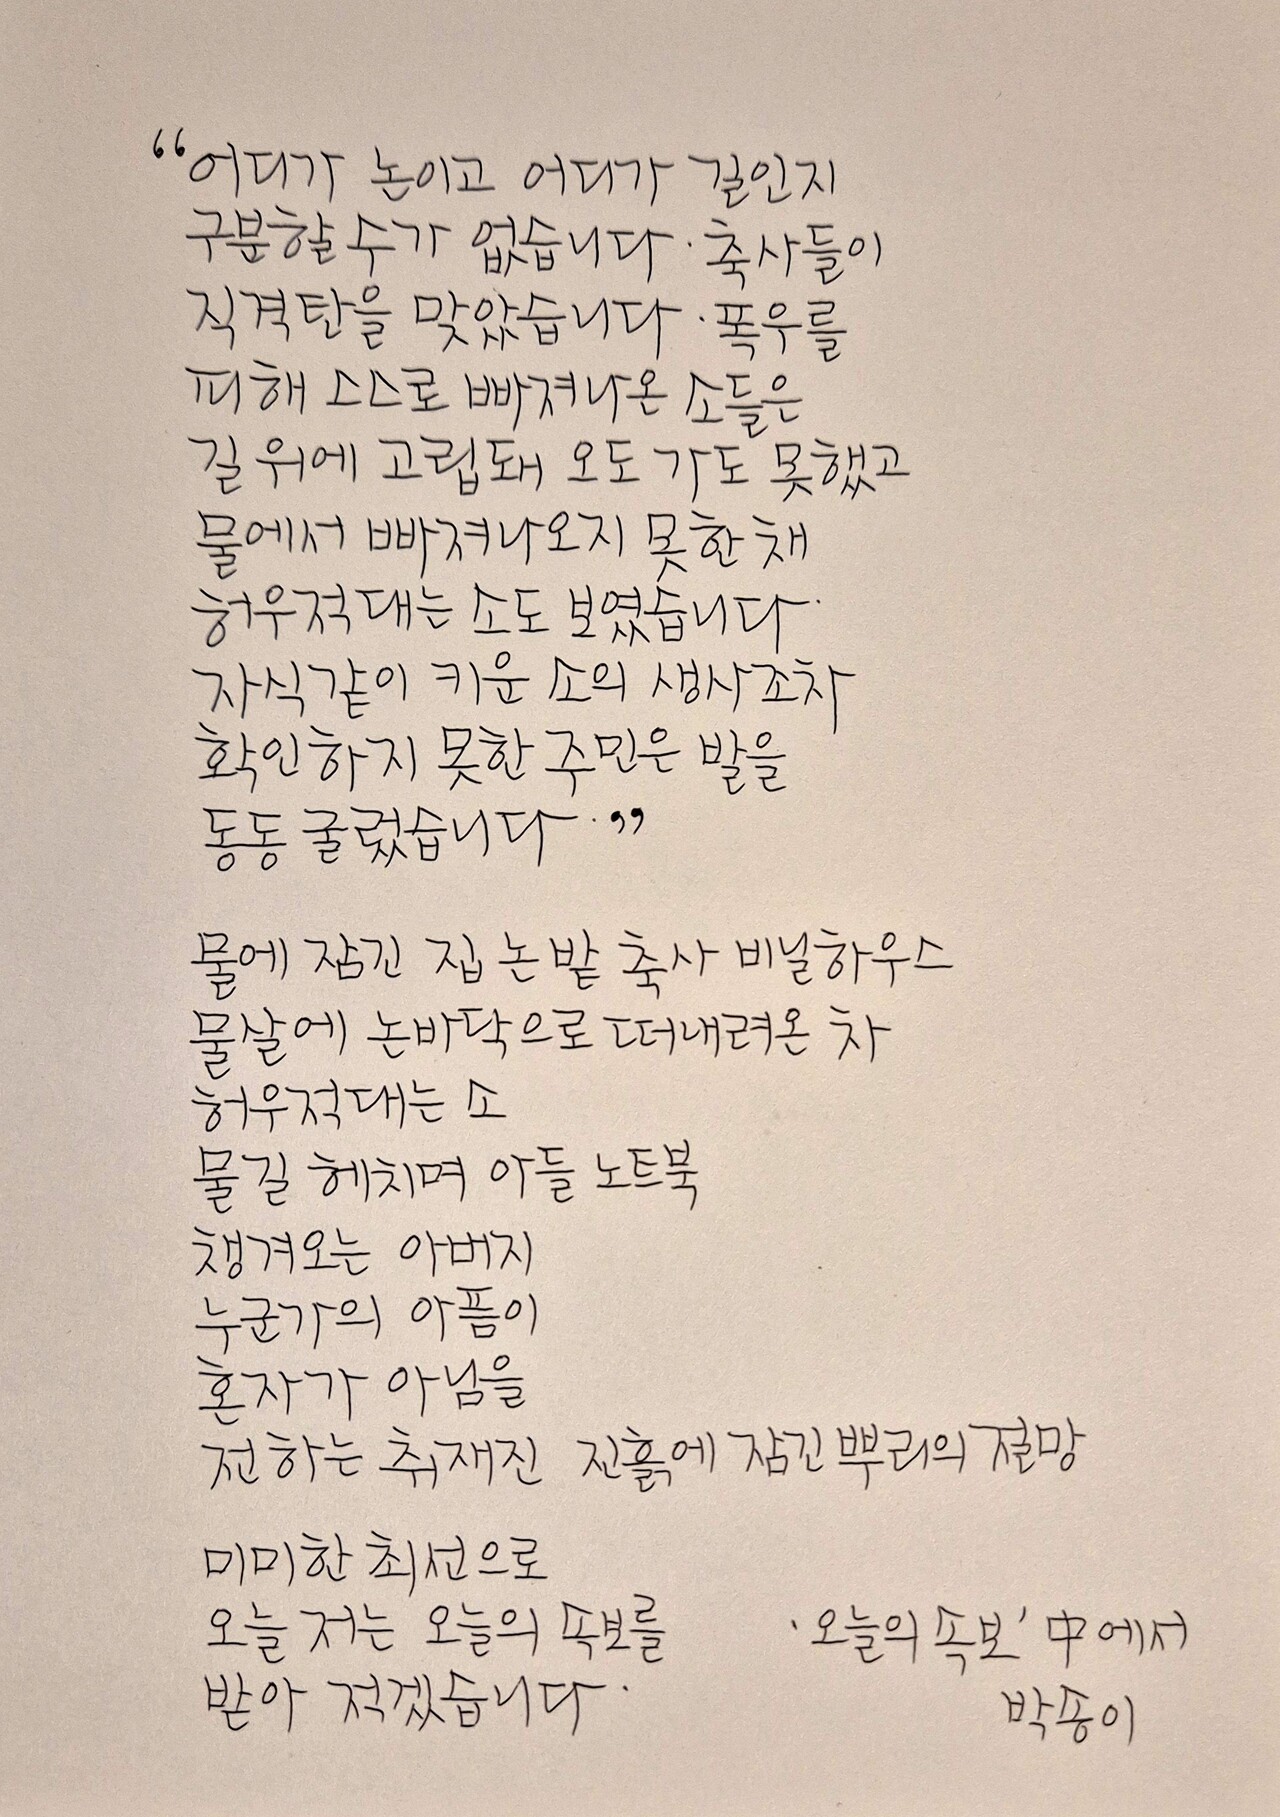 “어디가 논이고 어디가 길인지
구분할 수가 없습니다. 축사들이
직격탄을 맞았습니다. 폭우를
피해 스스로 빠져나온 소들은
길 위에 고립돼 오도 가도 못했고
물에서 빠져나오지 못한 채
허우적대는 소도 보였습니다.
자식같이 키운 소의 생사조차
확인하지 못한 주민은 발을
동동 굴렀습니다.”
물에 잠긴 집 논밭 축사 비닐하우스
물살에 논바닥으로 떠내려온 차
허우적대는 소
물길 헤치며 아들 노트북
챙겨오는 아버지
누군가의 아픔이
혼자가 아님을
전하는 취재진 진흙에 잠긴 뿌리의 절망
미미한 최선으로
오늘 저는 오늘의 속보를
받아 적겠습니다.
'오늘의 속보' 中에서
박송이